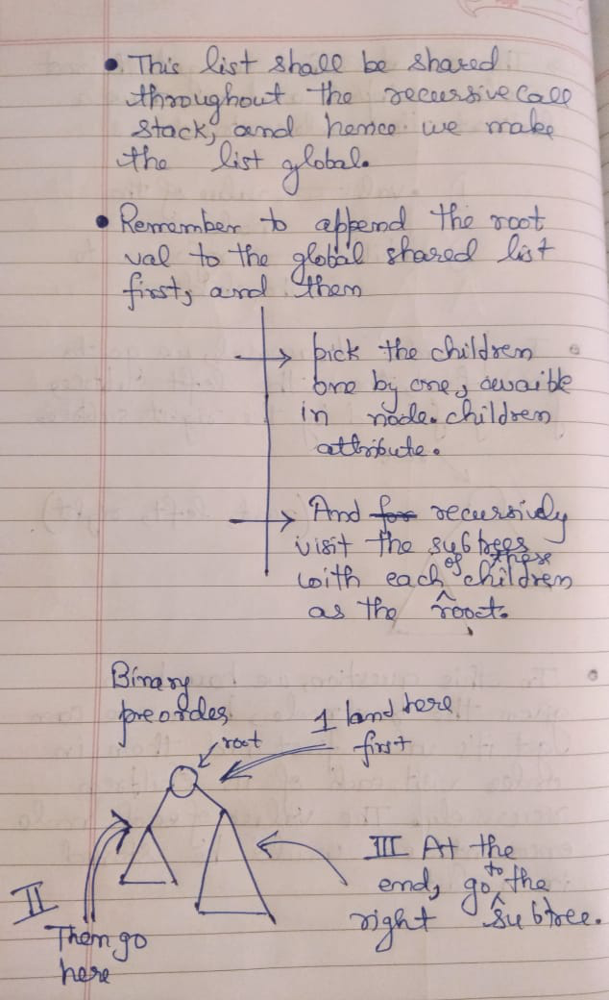 • This list shall be shared
throughout the recursive call
stack, and hence we make
the list global.
• Remember to append the root
val to the global shared list
first, and them
→ pick the children
one by one, avaible
in node.children
attribute.
→ And for recursively
visit the subtrees
with each of these children
as the root.
Binary
preorder
root
1 land here
first
II
Them go
here
III At the
end, go to the
right subtree.